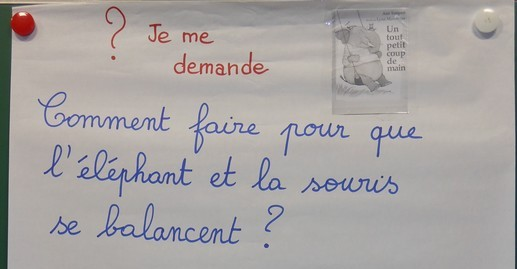 ? Je me
demande
Un
tout
petit
coup
de
main
Comment faire pour que
l'éléphant et la souris
se balancent ?